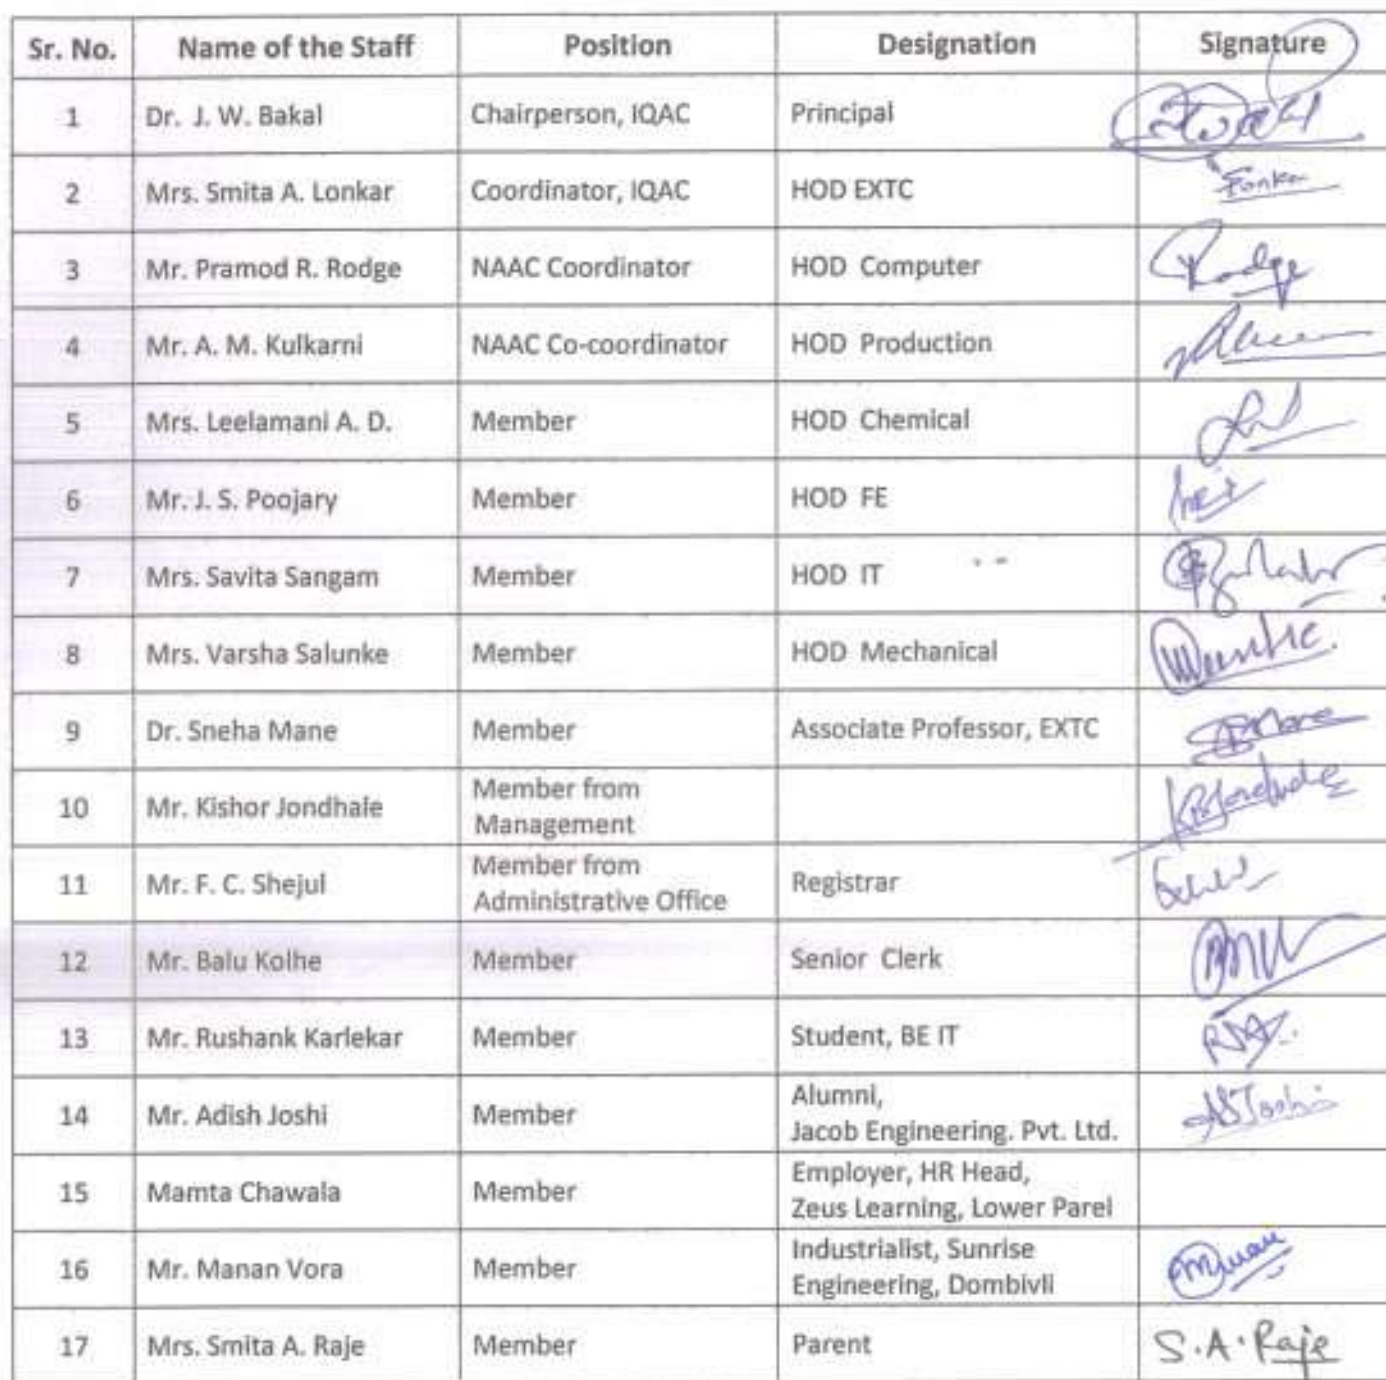 Sr. No. Name of the Staff Position Designation Signature
1 Dr. J. W. Bakal Chairperson, IQAC Principal
2 Mrs. Smita A. Lonkar Coordinator, IQAC HOD EXTC
3 Mr. Pramod R. Rodge NAAC Coordinator HOD Computer Rodge
4 Mr. A. M. Kulkarni NAAC Co-coordinator HOD Production
5 Mrs. Leelamani A. D. Member HOD Chemical
6 Mr. J. S. Poojary Member HOD FE
7 Mrs. Savita Sangam Member HOD IT
8 Mrs. Varsha Salunke Member HOD Mechanical
9 Dr. Sneha Mane Member Associate Professor, EXTC
10 Mr. Kishor Jondhale Member from
Management
11 Mr. F. C. Shejul Member from
Administrative Office Registrar
12 Mr. Balu Kolhe Member Senior Clerk
13 Mr. Rushank Karlekar Member Student, BE IT
14 Mr. Adish Joshi Member Alumni,
Jacob Engineering. Pvt. Ltd. ASJoshi
15 Mamta Chawala Member Employer, HR Head,
Zeus Learning, Lower Parel
16 Mr. Manan Vora Member Industrialist, Sunrise
Engineering, Dombivli
17 Mrs. Smita A. Raje Member Parent S.A.Raje